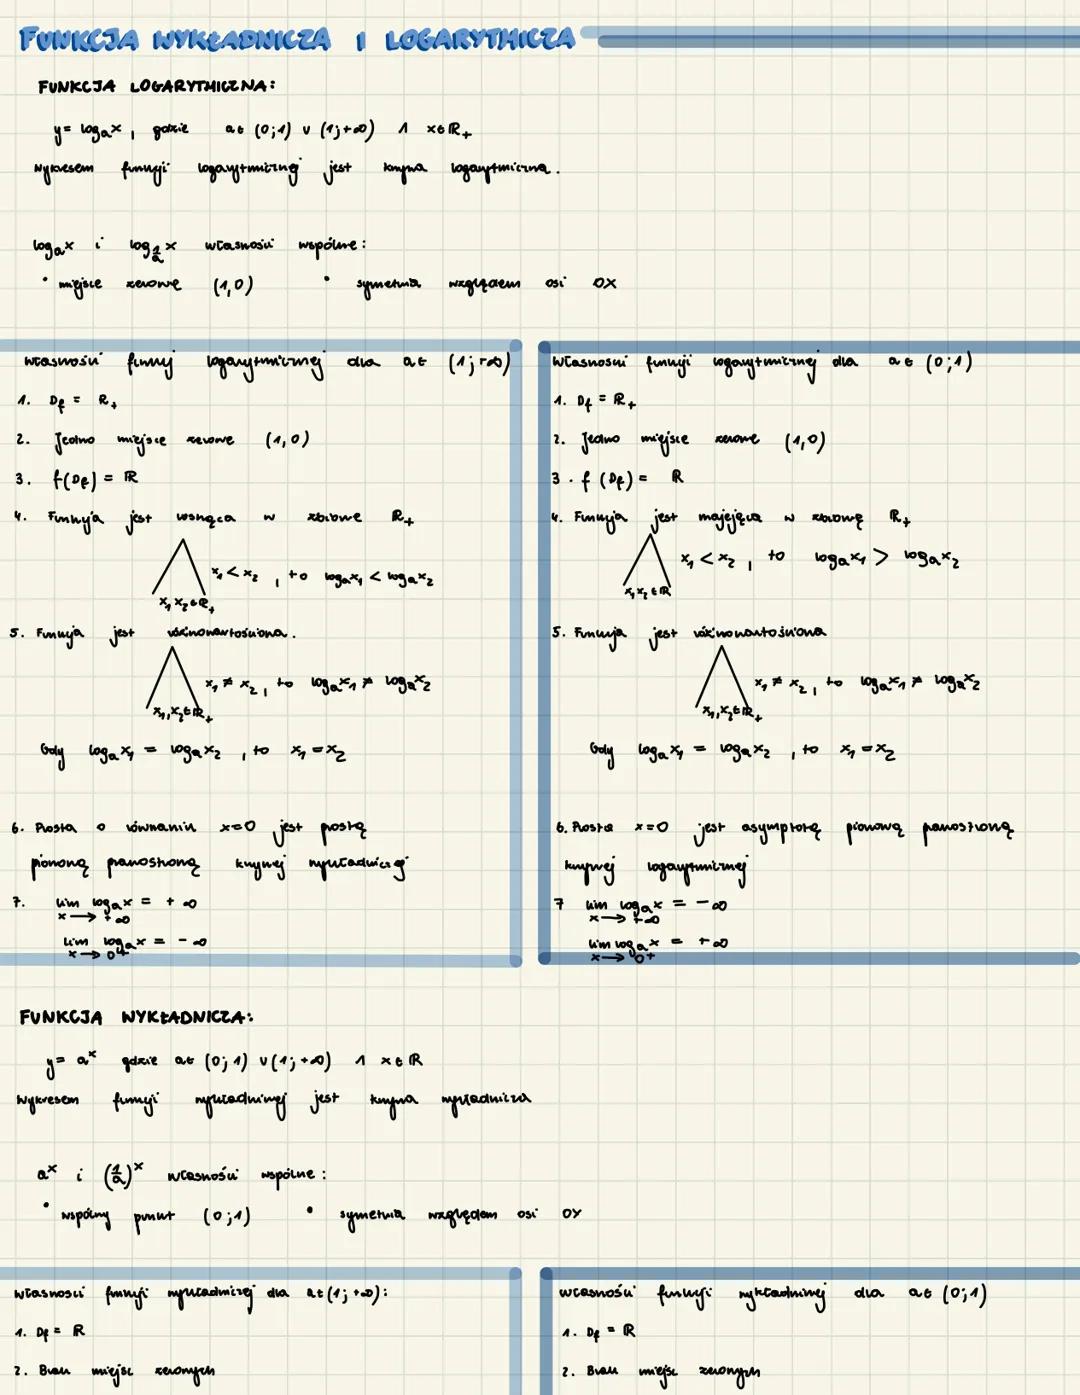 FUNKCJA WYKŁADNICZA I LOGARYTMICZA
FUNKCJA LOGARYTMICZNA:
y = logₐx, gdzie a ∈ (0;1) ∪ (1;+∞) ∧ x ∈ ℝ₊
Wykresem funkcji logarytmicznej jest krzywa logarytmiczna.
logₐx i log_(1/a) x własności wspólne:
• miejsce zerowe (1,0) • symetria względem osi OX
własności funkcj logarytmicznej dla a ∈ (1;+∞)
1. D_f = ℝ₊
2. Jedno miejsce zerowe (1,0)
3. f(D_f) = ℝ
4. Funkcja jest rosnąca w zbiorze ℝ₊
⋀ x₁ < x₂, to logₐx₁ < logₐx₂
x₁, x₂ ∈ ℝ₊
5. Funkcja jest różnowartościowa.
⋀ x₁ ≠ x₂, to logₐx₁ ≠ logₐx₂
x₁, x₂ ∈ ℝ₊
Gdy logₐx₁ = logₐx₂, to x₁ = x₂
6. Prosta o równaniu x=0 jest prostą
pionową prawostroną krzywej wykładniczej
7. lim logₐx = +∞
x → +∞
lim logₐx = -∞
x → 0⁺
Własności funkcji logarytmicznej dla a ∈ (0;1)
1. D_f = ℝ₊
2. Jedno miejsce zerowe (1,0)
3. f(D_f) = ℝ
4. Funkcja jest malejąca w zbiorze ℝ₊
⋀ x₁ < x₂, to logₐx₁ > logₐx₂
x₁, x₂ ∈ ℝ
5. Funkcja jest różnowartościowa
⋀ x₁ ≠ x₂, to logₐx₁ ≠ logₐx₂
x₁, x₂ ∈ ℝ₊
Gdy logₐx₁ = logₐx₂, to x₁ = x₂
6. Prosta x=0 jest asymptotą pionową prawostroną
krzywej logarytmicznej
7 lim logₐx = -∞
x → +∞
lim logₐx = +∞
x → 0⁺
FUNKCJA WYKŁADNICZA:
y = aˣ gdzie a ∈ (0;1) ∪ (1;+∞) ∧ x ∈ ℝ
Wykresem funkcji wykładniczej jest krzywa wykładnicza
aˣ i (1/a)ˣ własności wspólne:
• wspólny punkt (0;1) • symetria względem osi OY
własności funkcji wykładniczej dla a ∈ (1;+∞):
1. D_f = ℝ
2. Brak miejsc zerowych
własności funkcji wykładniczej dla a ∈ (0;1)
1. D_f = ℝ
2. Brak miejsc zerowych